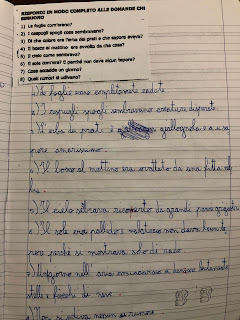 RISPONDI IN MODO COMPLETO ALLE DOMANDE CHE
SEGUONO
1) Le foglie com'erano?
2) I cespugli spogli cosa sembravano?
3) Di che colore era l'erba dei prati e che sapore aveva?
4) Il bosco al mattino era avvolto da che cosa?
5) Il cielo come sembrava?
6) Il sole com'era? E perché non dava alcun tepore?
7) Cosa accadde un giorno?
8) Quali rumori si udivano?
1) Le foglie erano completamente cadute.
2) I cespugli spogli sembravano creature disperate.
3) L'erba dei prati è giallognola e a
pore amarissimo.
4) Il bosco al mattino era avvolto da una fitta neb
bia.
5) Il cielo sembrava ricoperto di grandi panni grigiastri
6) Il sole era pallido e malaticcio non dava tepore,
perché si mostrava solo di rado.
7) Un giorno nell'aria cominciarono a danzare lievemente
stelle e fiocchi di neve.
8) Non si udiva nessun rumore.